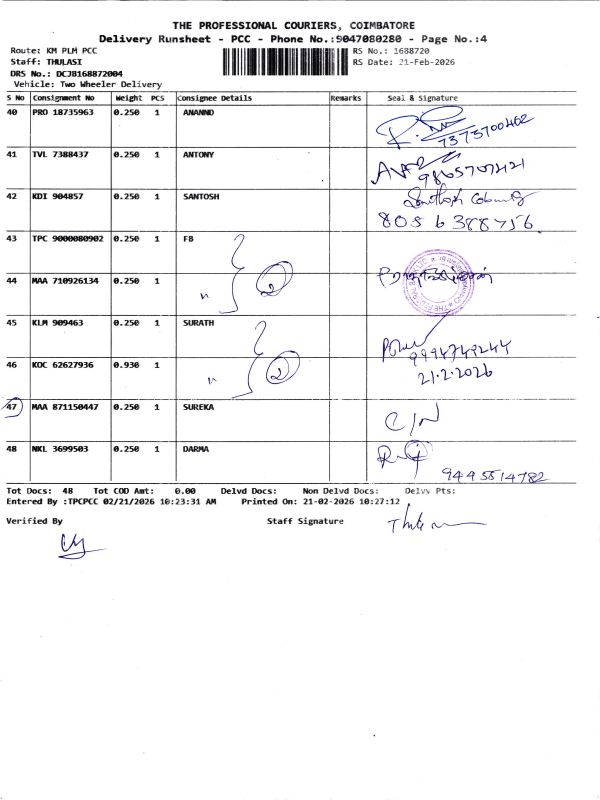 THE PROFESSIONAL COURIERS, COIMBATORE
Delivery Runsheet - PCC - Phone No.:9047080280 - Page No.:4
Route: KM PLM PCC
RS No.: 1688720
Staff: THULASI
RS Date: 21-Feb-2026
DRS No.: DCJB168872004
Vehicle: Two Wheeler Delivery
S No Consignment No Weight PCS Consignee Details Remarks Seal & Signature
40 PRO 18735963 0.250 1 ANANND
7373700462
41 TVL 7388437 0.250 1 ANTONY
9865707421
42 KDI 904857 0.250 1 SANTOSH
8056388756
43 TPC 9000080902 0.250 1 FB
44 MAA 710926134 0.250 1 " 2
45 KLM 909463 0.250 1 SURATH
9994749244
46 KOC 62627936 0.930 1 " 2
21.2.2026
47 MAA 871150447 0.250 1 SUREKA C/N
48 NKL 3699503 0.250 1 DARMA
9445514782
Tot Docs: 48 Tot COD Amt: 0.00 Delvd Docs: Non Delvd Docs: Delvy Pts:
Entered By :TPCPCC 02/21/2026 10:23:31 AM Printed On: 21-02-2026 10:27:12
Verified By Staff Signature